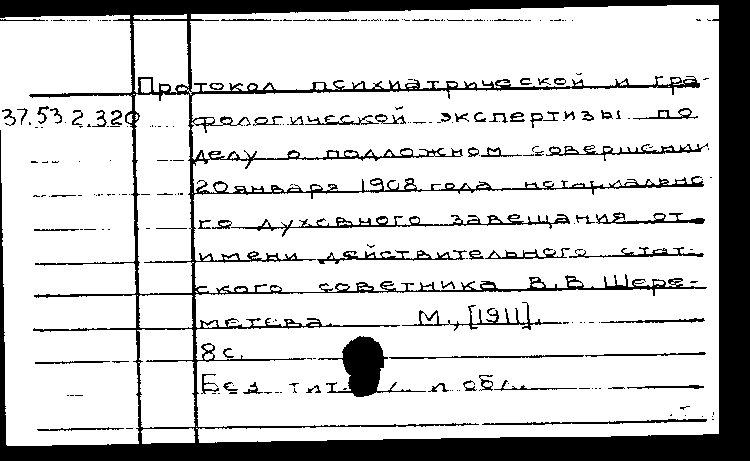 Протокол психиатрической и гра-
37.53.2.320 фологической экспертизы по
делу о подложном совершении
20 января 1908 года нотариально-
го духовного завещания от
имени действительного стат-
ского советника В.В. Шере-
метева. М., [1911].
8 с.
Без тит. л. и обл.